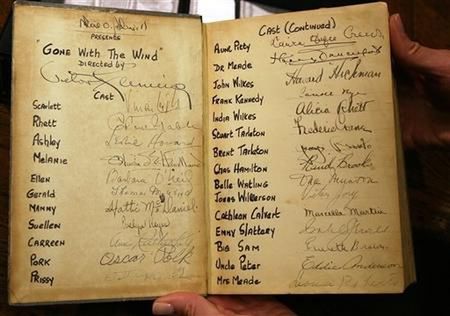 PRESENTS
"GONE WITH THE WIND"
DIRECTED BY
Victor Fleming
CAST
SCARLETT
RHETT
ASHLEY Leslie Howard
MELANIE Olivia de Havilland
ELLEN Barbara O'Neil
GERALD Thomas Mitchell
MAMMY Hattie McDaniel
SUELLEN Evelyn Keyes
CARREEN Ann Rutherford
PORK Oscar Polk
PRISSY
CAST (CONTINUED)
AUNT PITTY Laura Hope Crews
DR MEADE Harry Davenport
JOHN WILKES Howard Hickman
FRANK KENNEDY
INDIA WILKES Alicia Rhett
STUART TARLETON
BRENT TARLETON
CHAS HAMILTON Rand Brooks
BELLE WATLING Ona Munson
JONAS WILKERSON Victor Jory
CATHLEEN CALVERT Marcella Martin
EMMY SLATTERY
BIG SAM Everett Brown
UNCLE PETER Eddie Anderson
MRS MEADE